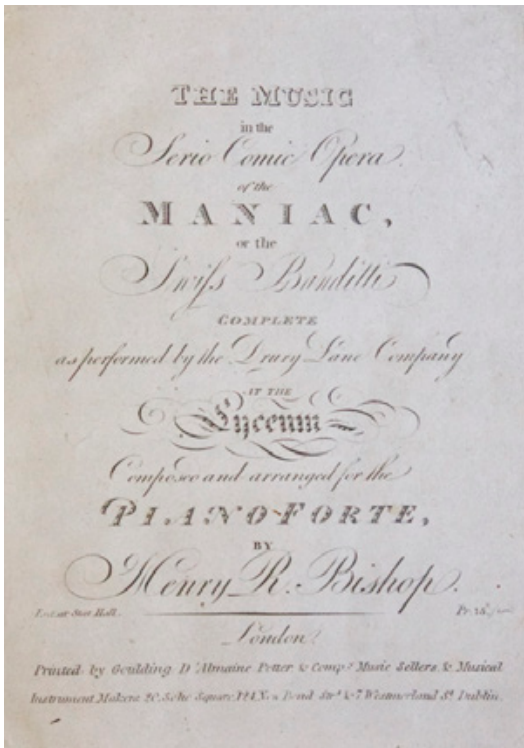 THE MUSIC
in the
Serio Comic Opera.
of the
MANIAC,
or the
Swiſs Banditti
COMPLETE
as performed by the Drury Lane Company
AT THE
Lyceum
Composed and arranged for the
PIANO-FORTE,
BY
Henry R. Bishop.
Ent. at Stat. Hall. Pr.
London.
Printed by Goulding D'Almaine Potter & Comp.y Music Sellers & Musical
Instrument Makers 20, Soho Square, Bond Str.t & 7 Westmorland S.t Dublin.